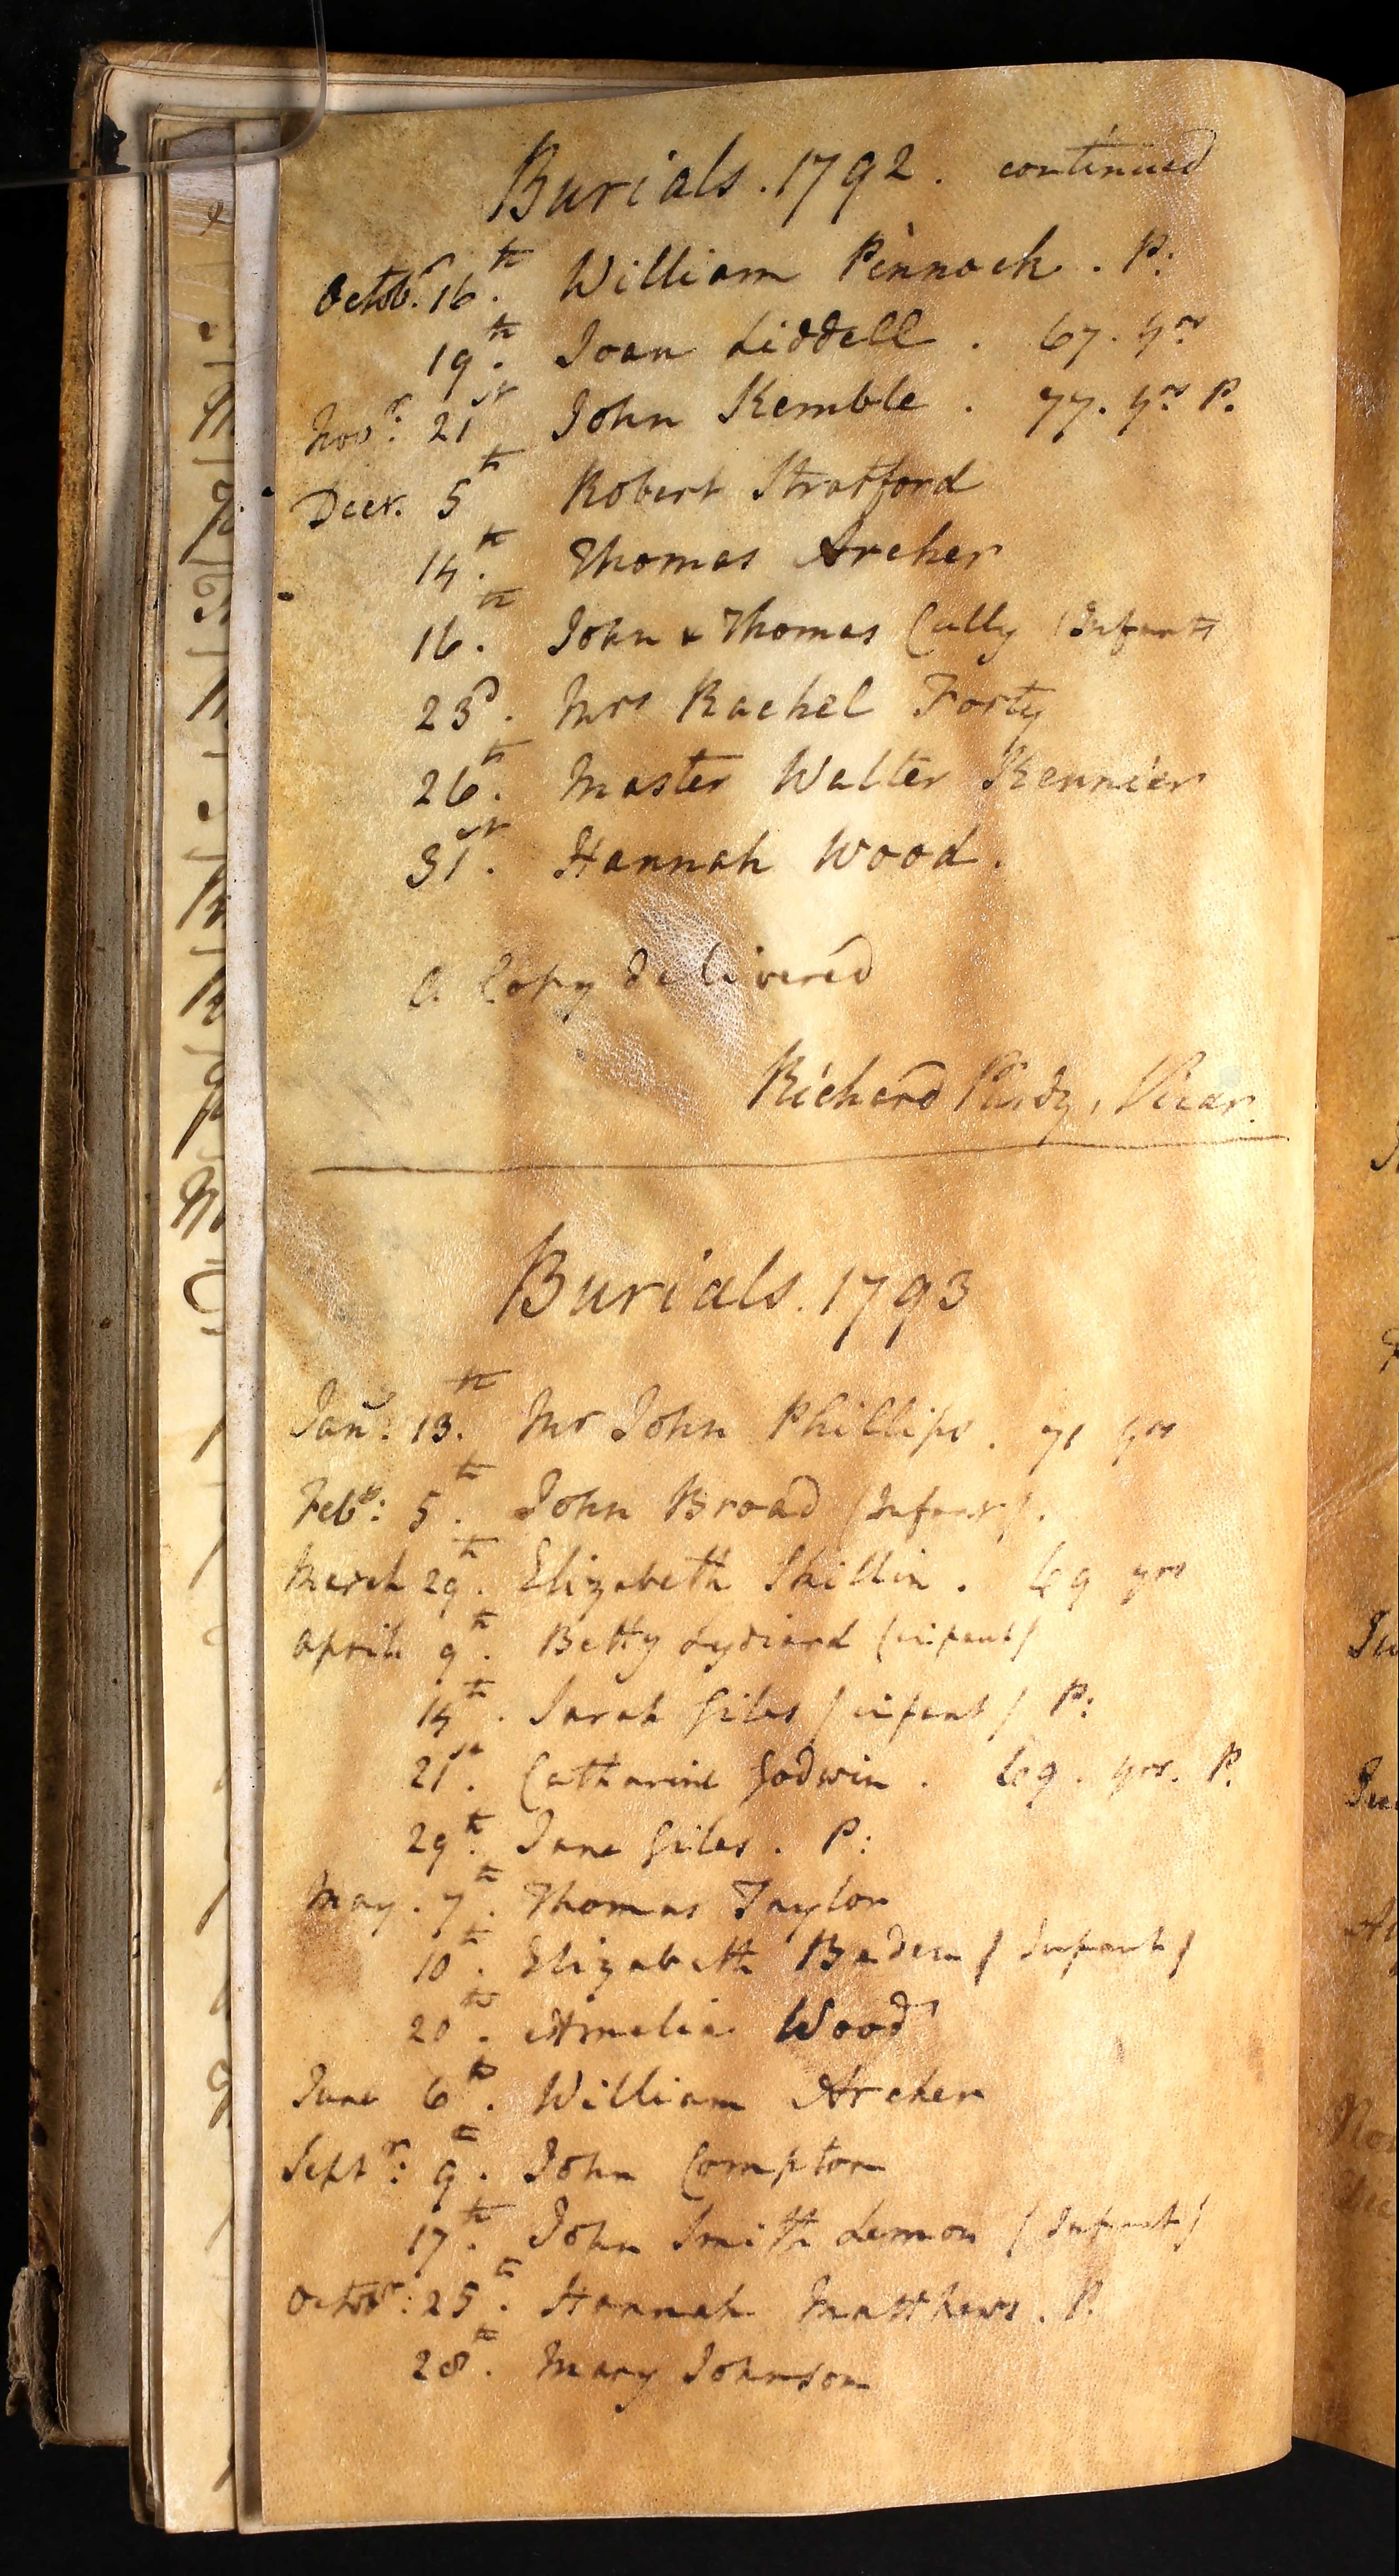 Burials. 1792. continued
Octobr. 16th. William Pinnock. P:
19th. Joan Liddell. 67. yrs
Novr: 21st John Kemble. 77. yrs P.
Decr. 5th Robert Stratford
14th. Thomas Archer
16th. John & Thomas Cully (Infants
23d. Mrs Rachel Forty
26th. Master Walter
31st. Hannah Wood.
A Copy delivered
Richard Purdy, Vicar.
Burials. 1793
Jany: 13th. Mr John Phillips. 71 yrs
Feby: 5th. John Broad (Infant).
March 29th. Elizabeth Skillin. 69 yrs
April 9th. Betty Lydiard (infant)
14th. Sarah Giles (infant) P:
21st. Catharine Godwin. 69. yrs. P.
29th. Jane Giles. P:
May. 7th. Thomas Taylor
10th. Elizabeth Baden (Infant)
20th. Amelia Wood
June 6th. William Archer
Septr: 9th. John Compton
17th. John Smith Lemon (Infant)
Octobr: 25th. Hannah Matthews. P.
28th. Mary Johnson